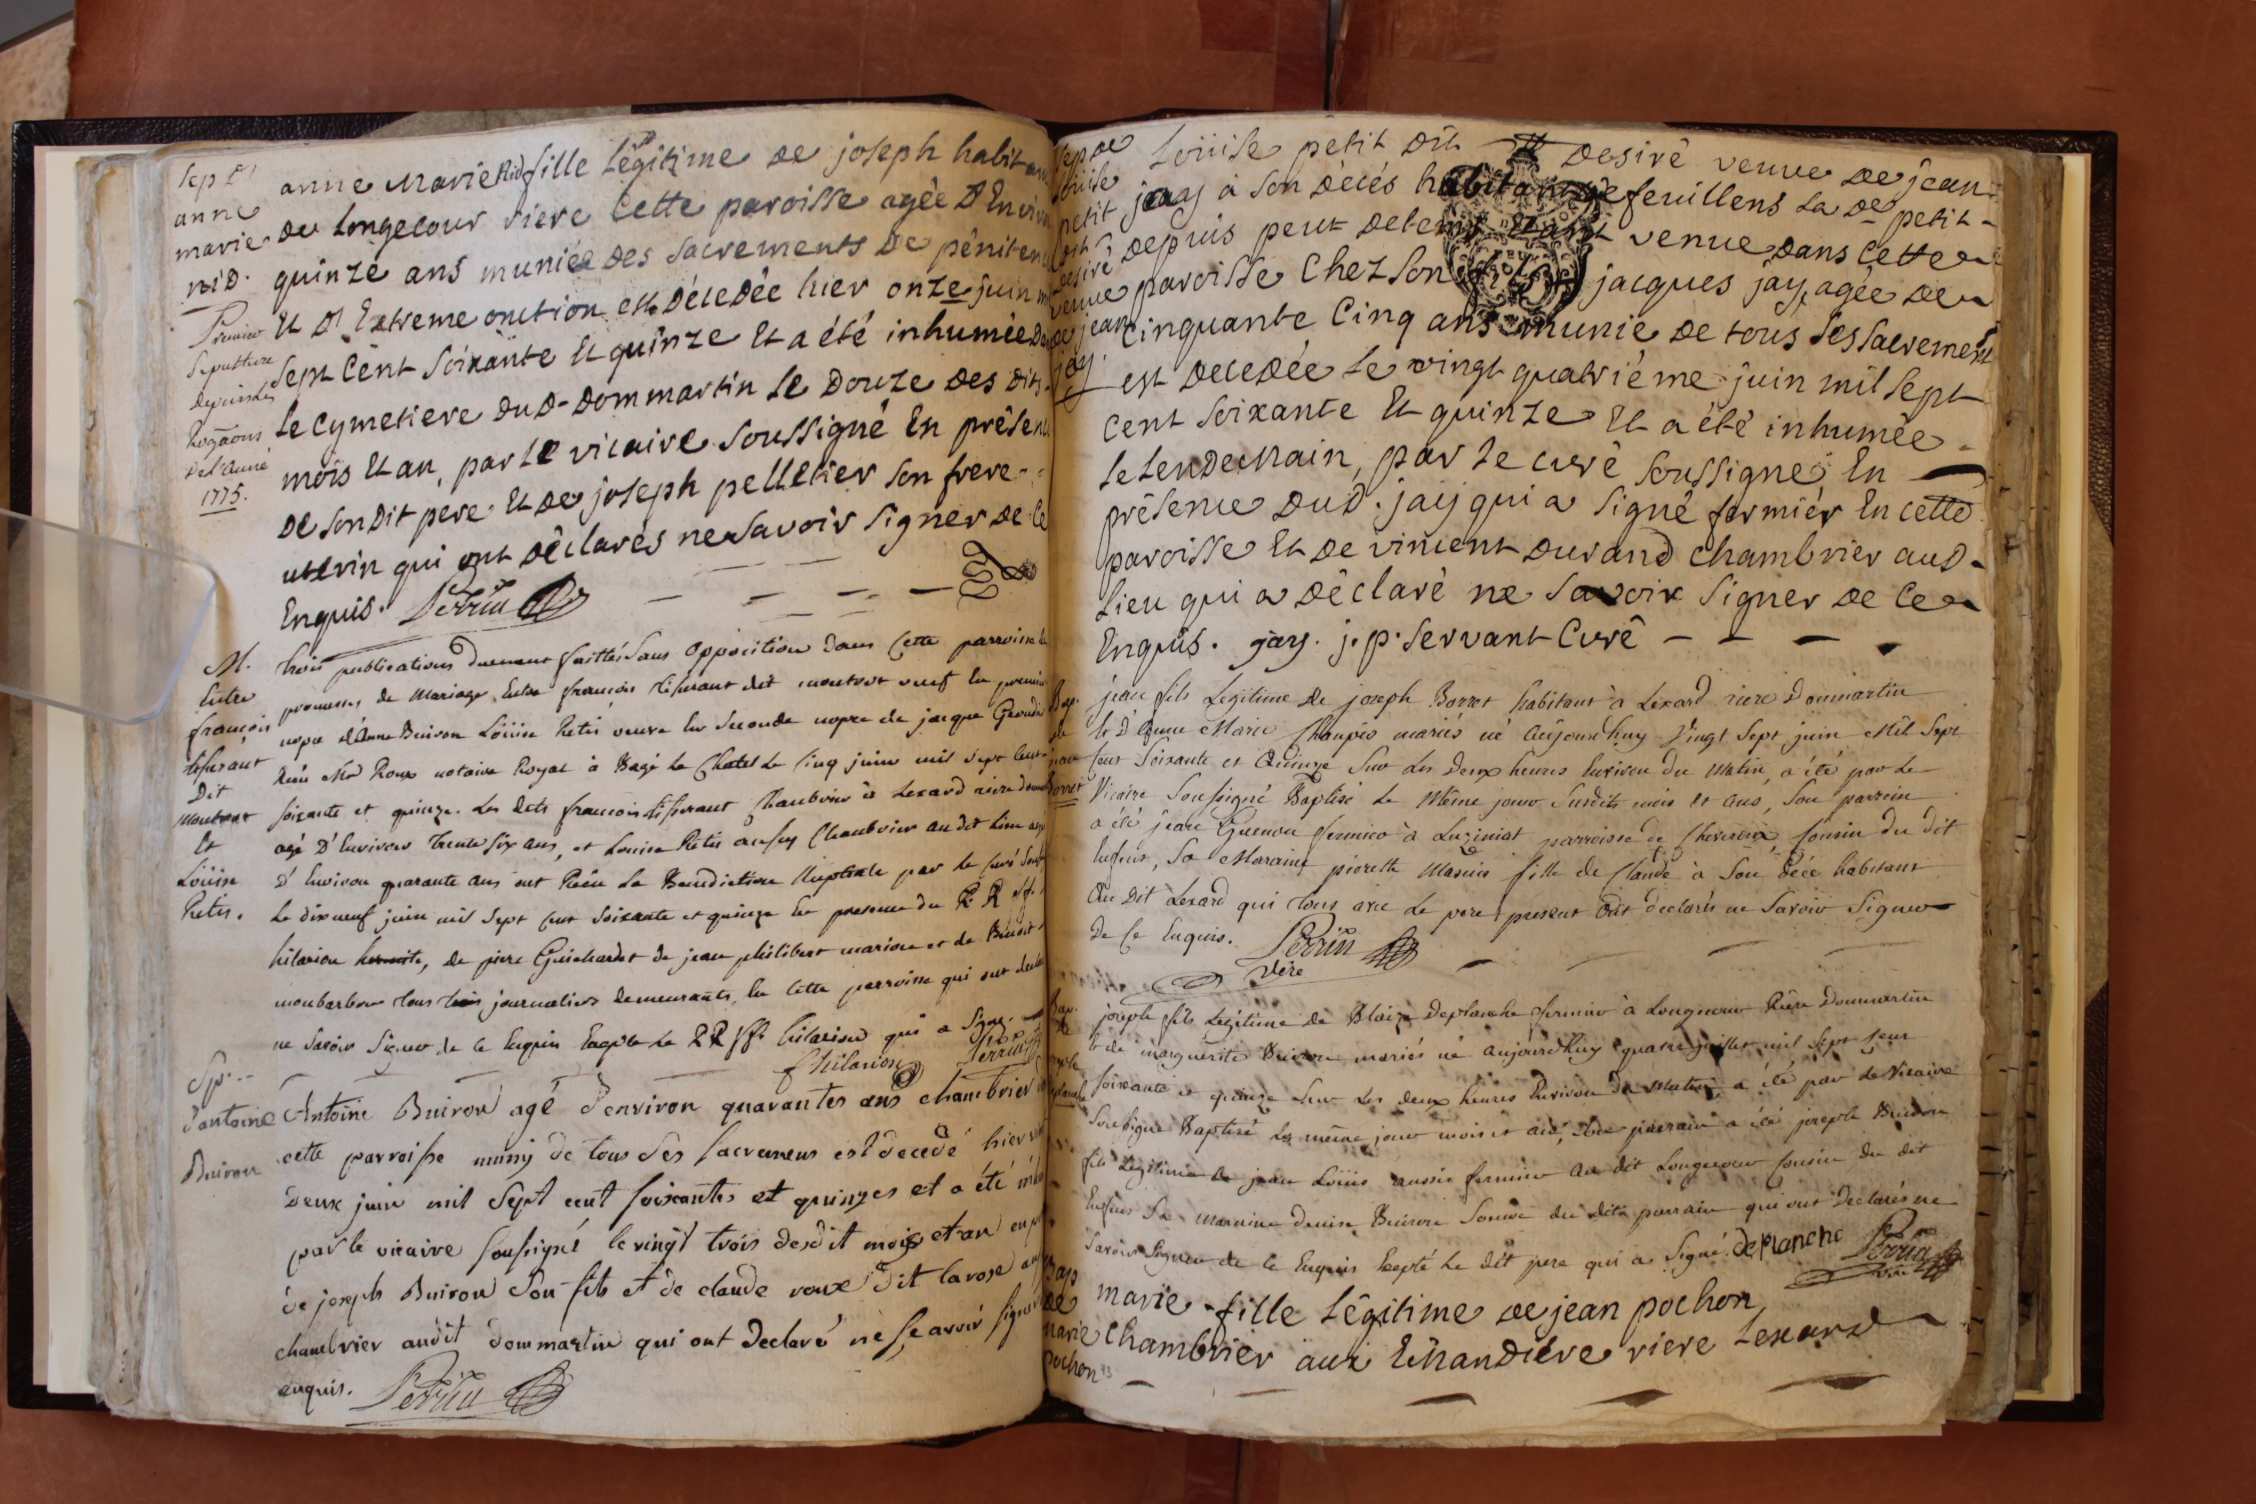 Sep D'
anne
marie
niD.
Premiere
Sepulture
depuis les
Rogaōns
de l'année
1775.
anne marie niD fille légitime de joseph habitant
de longecour riere cette paroisse agée D'Environ
quinze ans muniée des sacrements de péniten
Et D'Extreme onction est décedée hier onze juin m
sept cent soixante Et quinze Et a été inhumée D
le cymetiere dud. dommartin le Douze des dits
mois Et an, par le vicaire soussigné En présen
de son Dit pere Et de joseph pelletier son frere
uterin qui ont déclarés ne savoir signer de ce
Enquis. Perrin
M.
Entre
françois
tisserant
Dit
montrat
Et
Loüise
Petit.
trois publications duement faittes sans opposition dans cette parroisse
promesses de mariage Entre françois tisserant dit montrat veuf En premier
nopce d'Anne Buiron Loüise Petit veuve En seconde nopce de jacque
Reçu Mre Roux notaire Royal à Bagé le Chatel le Cinq juin mil sept cent
soixante et quinze. Les dits françois tisserant Chambrier à Lexard riere domm
agé D'Environ trente six ans, et Louise Petit aussy Chambrier au dit lieu agée
D'Environ quarante ans ont Reçu La Benediction Nuptiale par le Curé Souss
Le dixneuf juin mil sept cent soixante et quinze En presence du R. P. ff.
hilarion hermite, de piere Guichardet de jean philibert marion et de Benoit
monbarbon tous trois journaliers demeurants En Cette parroisse qui ont declar
ne savoir signer de ce Enquis Excepté le R P ff. hilarion qui a signé.
f hilarion Perrin
Sp.
d'antoine
Buiron
Antoine Buiron agé d'environ quarantes ans chambrier
cette parroisse muny de tous ses sacremens est decedé hier vin
deux juin mil sept cent soixantes et quinzes et a été inh
par le vicaire soussigné le vingt trois desdit mois et an en p
de joseph Buiron son fils et de claude roux dit larose au
chambrier audit dommartin qui ont declaré ne seavoir signer
enquis. Perrin
Sep de
loüise
petit
dit
desiré
veuve
de jean
jay.
Loüise petit Dit desiré veuve de jean
jay à son décés habitant de feuillens La De petit
Depuis peut de tems Etant venue dans cette
paroisse chez son fils jacques jay, agée de
cinquante cinq ans munie de tous ses sacrements
est decedée le vingt quatriéme juin mil sept
cent soixante Et quinze Et a été inhumée
le lendemain, par le curé soussigné En
présence dud. jay qui a signé fermiér En cette
paroisse Et de vincent durand chambrier aud.
lieu qui a déclaré ne savoir signer de ce
Enquis. jay. j. p. servant Curé
Bap.
de
jean
Borret
jean fils Legitime de joseph Borret habitant à Lexard riere Dommartin
Et D'Anne Marie Chanpés mariés né Aujourd'huy Vingt Sept juin Mil Sept
Cent Soixante et Quinze Sur Les Deux heures Environ du Matin, a été par Le
Vicaire Soussigné Baptisé le Même jour Susdits mois et ans, Son parrein
a été jean Guenon fermier à Luziniat parroisse de Cheveroux, Cousin du dit
Enfant, Sa Maraine pierette fille de Claude à Son décé habitant
Au Dit Lexard qui tous avec Le pere present ont declarés ne Savoir Signer
de Ce Enquis. Perrin
vire
Bap.
de
joseph
joseph fils Legitime de Blaize Deplanche fermier à Longecour Riere Dommartin
Et de marguerite Buiron mariés né aujourd'huy quatre juillet mil Sept Cent
Soixante et quinze Sur Les deux heures Environ du matin, a été par Le Vicaire
Soussigné Baptisé Le même jour mois et an, Son parrain a été joseph Buiron
fils Legitime de jean Loüis aussi fermier Au dit Longecour Cousin du dit
Enfant Sa maraine denise Buiron Soeur du dit parrain qui ont Declarés ne
Savoir Signer de Ce Enquis Excepté Le dit pere qui a Signé. deplanche Perrin
vire
Bap
de
marie
pochon
marie fille légitime de jean pochon
chambrier aux Echandiere riere Lexard